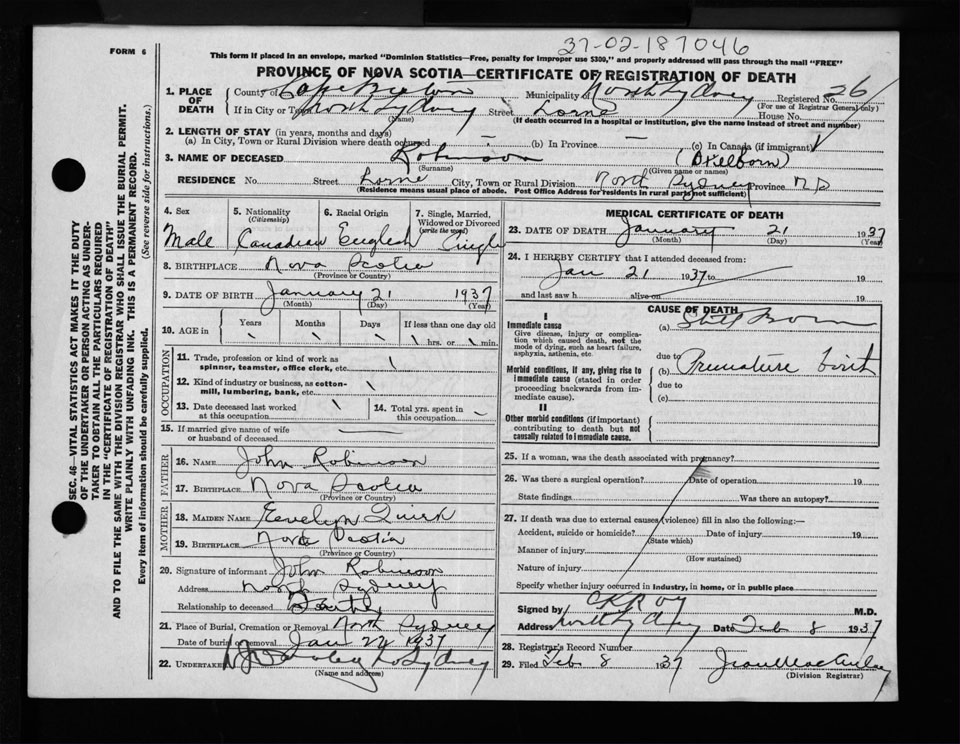 37-02-187046
FORM 6
This form if placed in an envelope, marked "Dominion Statistics—Free, penalty for improper use $300," and properly addressed will pass through the mail "FREE"
PROVINCE OF NOVA SCOTIA—CERTIFICATE OF REGISTRATION OF DEATH
1. PLACE OF DEATH
County of Cape Breton Municipality of North Sydney Registered No. 26
(For use of Registrar General only)
If in City or Town North Sydney Street Lorne House No.
(Name) (If death occurred in a hospital or institution, give the name instead of street and number)
2. LENGTH OF STAY (in years, months and days)
(a) In City, Town or Rural Division where death occurred — (b) In Province — (c) In Canada (if immigrant)
3. NAME OF DECEASED Robinson
(Surname) (Given name or names)
RESIDENCE No. Street Lorne City, Town or Rural Division North Sydney Province N S
(Residence means usual place of abode. Post Office Address for residents in rural parts not sufficient)
4. Sex Male
5. Nationality (Citizenship) Canadian
6. Racial Origin English
7. Single, Married, Widowed or Divorced (write the word) Single
8. BIRTHPLACE Nova Scotia
(Province or Country)
9. DATE OF BIRTH January 21 1937
(Month) (Day) (Year)
10. AGE in Years Months Days If less than one day old
hrs. or min.
OCCUPATION
11. Trade, profession or kind of work as spinner, teamster, office clerk, etc.
12. Kind of industry or business, as cotton-mill, lumbering, bank, etc.
13. Date deceased last worked at this occupation
14. Total yrs. spent in this occupation
15. If married give name of wife or husband of deceased
FATHER
16. NAME John Robinson
17. BIRTHPLACE Nova Scotia
(Province or Country)
MOTHER
18. MAIDEN NAME Eevelyn Quirk
19. BIRTHPLACE Nova Scotia
(Province or Country)
20. Signature of informant John Robinson
Address North Sydney
Relationship to deceased
21. Place of Burial, Cremation or Removal North Sydney
Date of burial or removal Jan 22 1937
22. UNDERTAKER No Sydney
(Name and address)
MEDICAL CERTIFICATE OF DEATH
23. DATE OF DEATH January 21 1937
(Month) (Day) (Year)
24. I HEREBY CERTIFY that I attended deceased from:
Jan 21 1937 to 19
and last saw h alive on 19
CAUSE OF DEATH
I
Immediate cause
Give disease, injury or complication which caused death, not the mode of dying, such as heart failure, asphyxia, asthenia, etc.
(a) Still Born
due to
Morbid conditions, if any, giving rise to immediate cause (stated in order proceeding backwards from immediate cause).
(b) Premature birth
due to
(c)
II
Other morbid conditions (if important) contributing to death but not causally related to immediate cause.
25. If a woman, was the death associated with pregnancy?
26. Was there a surgical operation? Date of operation 19
State findings Was there an autopsy?
27. If death was due to external causes (violence) fill in also the following:—
Accident, suicide or homicide? Date of injury 19
(State which)
Manner of injury
(How sustained)
Nature of injury
Specify whether injury occurred in industry, in home, or in public place
Signed by M.D.
Address North Sydney Date Feb 8 1937
28. Registrar's Record Number
29. Filed Feb 8 1937 Jean MacAulay
(Division Registrar)
SEC. 46—VITAL STATISTICS ACT MAKES IT THE DUTY
OF THE UNDERTAKER OR PERSON ACTING AS UNDER-
TAKER TO OBTAIN ALL THE PARTICULARS REQUIRED
IN THE "CERTIFICATE OF REGISTRATION OF DEATH"
AND TO FILE THE SAME WITH THE DIVISION REGISTRAR WHO SHALL ISSUE THE BURIAL PERMIT.
WRITE PLAINLY WITH UNFADING INK. THIS IS A PERMANENT RECORD.
Every item of information should be carefully supplied. (See reverse side for instructions.)